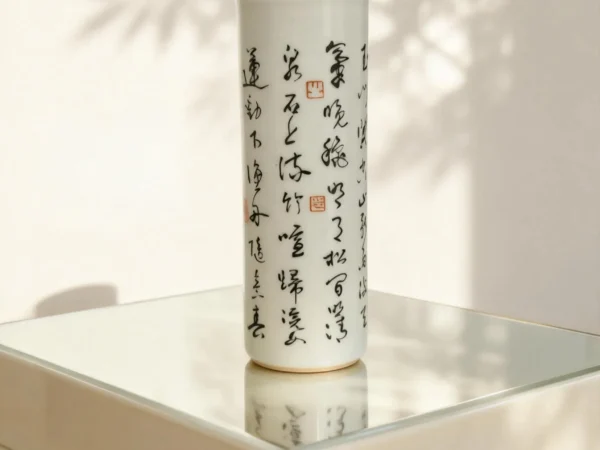 山新雨後天
氣晚秋明月松間照清
泉石上流竹喧歸浣女
蓮動下漁舟隨意春